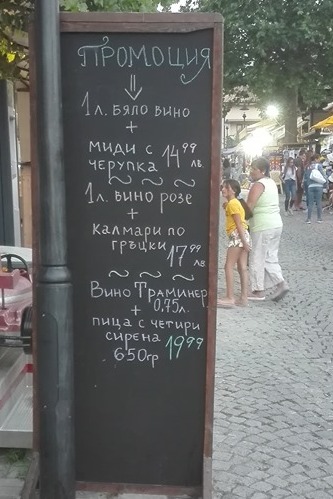 ПРОМОЦИЯ
1л. БЯЛО ВИНО
+
МИДИ С
ЧЕРУПКА 14 99 ЛВ.
1л. ВИНО РОЗЕ
+
КАЛМАРИ ПО
ГРЪЦКИ 17 99 ЛВ
ВИНО ТРАМИНЕР
+ 0,75л.
ПИЦА С ЧЕТИРИ
СИРЕНА 19 99
650гр